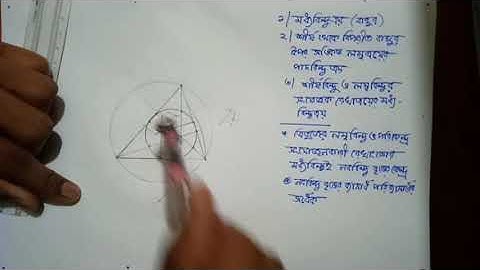 ১) মধ্যবিন্দুত্রয় (বাহুর)
২) শীর্ষ থেকে বিপরীত বাহুর
উপর অঙ্কিত লম্বত্রয়ের
পাদবিন্দুত্রয়
৩) শীর্ষবিন্দু ও লম্ববিন্দুর
সংযোজক রেখাত্রয়ের মধ্য-
বিন্দুত্রয়
ত্রিভুজের লম্ববিন্দু ও পরিকেন্দ্র
সংযোজনকারী রেখাংশের
মধ্যবিন্দুই নববিন্দু বৃত্তের কেন্দ্র
নববিন্দু বৃত্তের ব্যাসার্ধ পরিব্যাসার্ধের
অর্ধেক